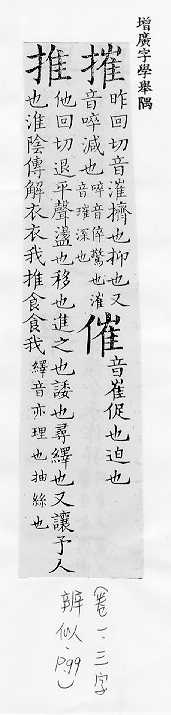 增廣字學舉隅
摧 昨回切音漼擠也抑也又
音啐滅也 啐音倅驚也漼
音璀深也
催 音崔促也迫也
推 他回切退平聲盪也移也進之也諉也尋繹也又讓予人
也淮陰傳解衣衣我推食食我 繹音亦理也抽絲也
(卷一、三字
辨似、
P.99)